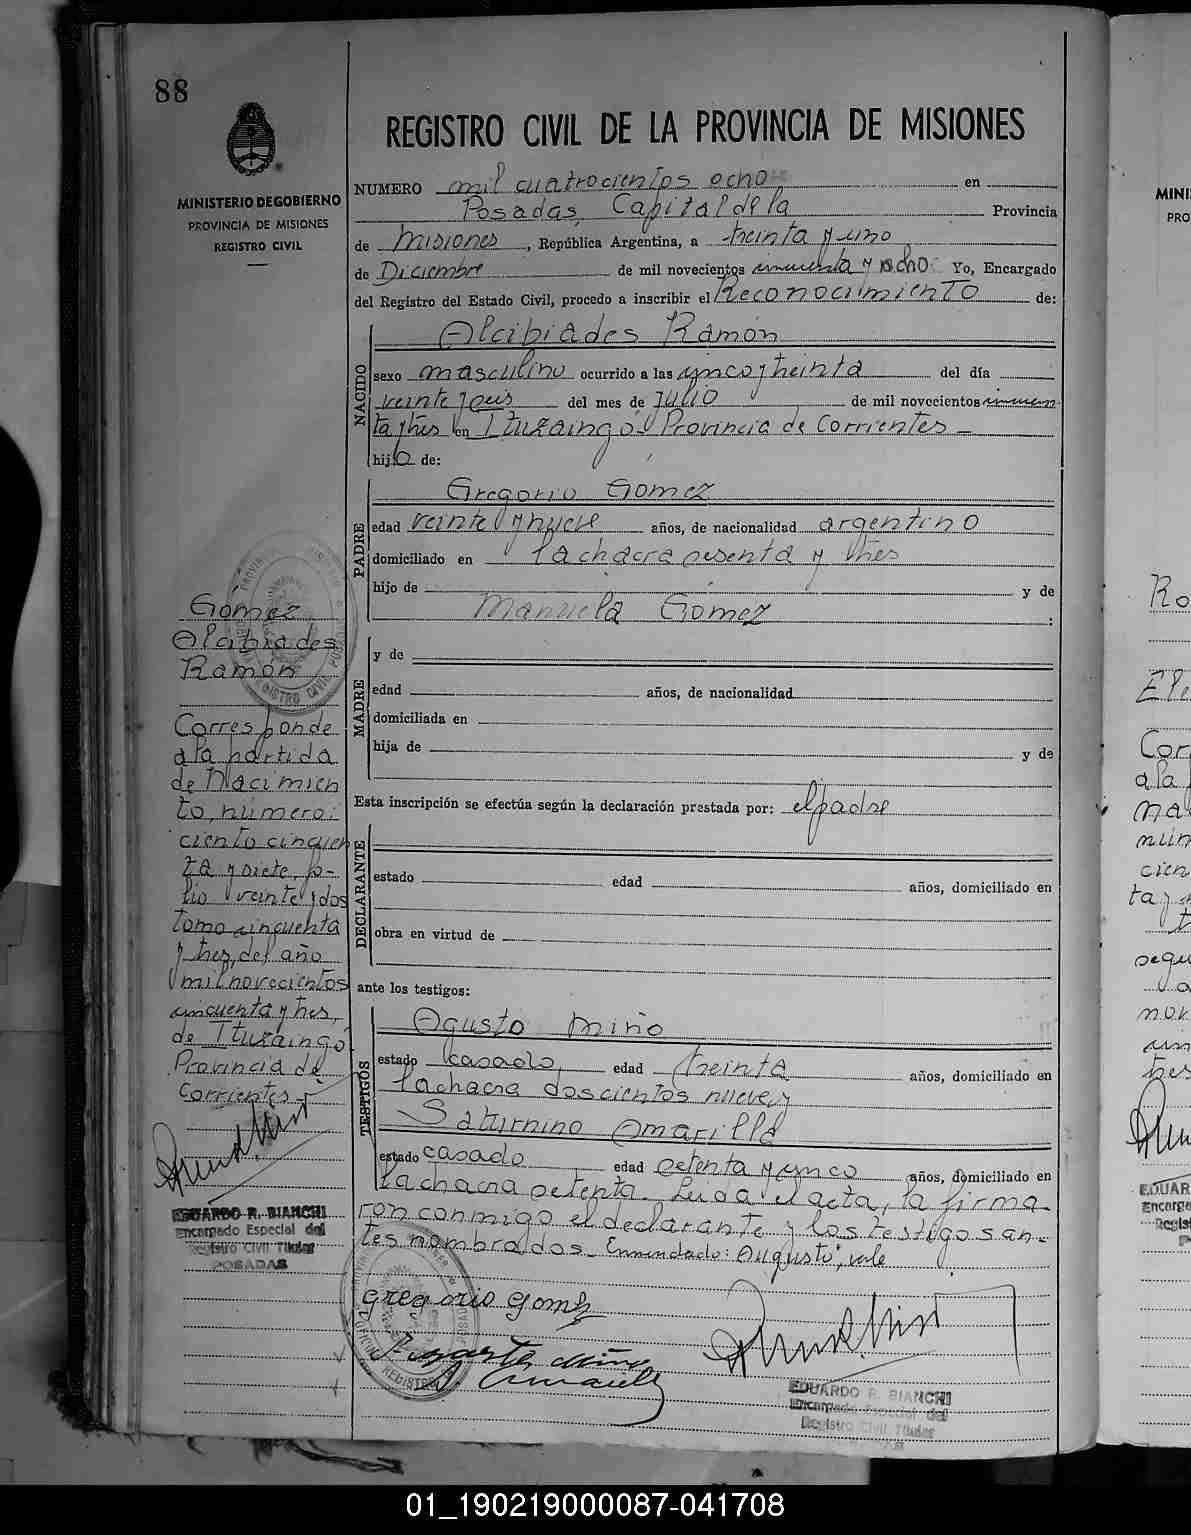 88
MINISTERIO DE GOBIERNO
PROVINCIA DE MISIONES
REGISTRO CIVIL
REGISTRO CIVIL DE LA PROVINCIA DE MISIONES
NUMERO mil cuatrocientos ocho en
Posadas, Capital de la Provincia
de Misiones, República Argentina, a treinta y uno
de Diciembre de mil novecientos cincuenta y ocho Yo, Encargado
del Registro del Estado Civil, procedo a inscribir el Reconocimiento de:
NACIDO
Alcibiades Ramón
sexo masculino ocurrido a las cinco y treinta del día
veinte y seis del mes de Julio de mil novecientos cincuen
ta y tres en Ituzaingó - Provincia de Corrientes -
hijo de:
PADRE
Gregorio Gómez
edad veinte y nueve años, de nacionalidad argentino
domiciliado en la chacra sesenta y tres
hijo de y de
Manuela Gómez :
MADRE
y de
edad años, de nacionalidad
domiciliada en
hija de y de
Esta inscripción se efectúa según la declaración prestada por: el padre
DECLARANTE
estado edad años, domiciliado en
obra en virtud de
ante los testigos:
TESTIGOS
Agusto Miño
estado casado, edad treinta años, domiciliado en
la chacra doscientos nueve y
Saturnino Amarilla
estado casado edad setenta y cinco años, domiciliado en
la chacra setenta. Leída el acta, la firma-
ron conmigo el declarante y los testigos an-
tes nombrados - Enmendado: Augusto; vale
Gregorio Gomez
EDUARDO R. BIANCHI
Encargado Especial del
Registro Civil Titular
Gómez
Alcibiades
Ramón
Corresponde
a la partida
de Nacimien
to, número:
ciento cincuen
ta y siete, fo-
lio veinte y dos
tomo cincuenta
y tres, del año
mil novecientos
cincuenta y tres,
de Ituzaingó
Provincia de
Corrientes
EDUARDO R. BIANCHI
Encargado Especial del
Registro Civil Titular
POSADAS
01_190219000087-041708